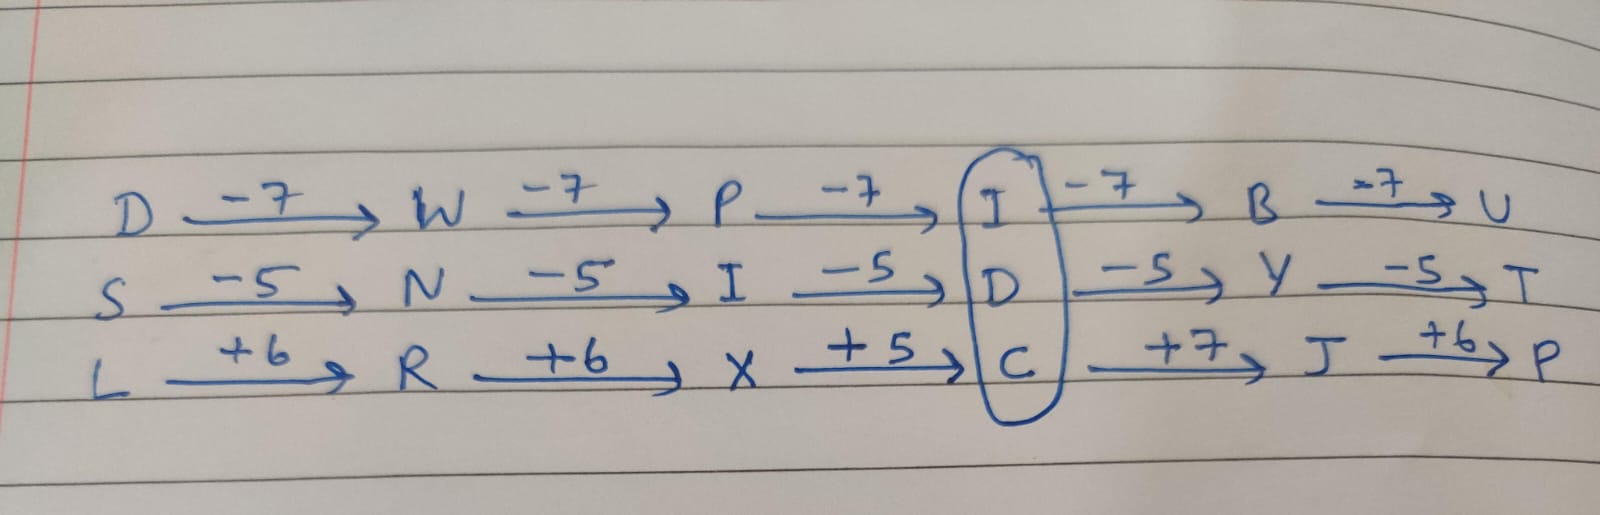 D -7→ W -7→ P -7→ I -7→ B -7→ U
S -5→ N -5→ I -5→ D -5→ Y -5→ T
L +6→ R +6→ X +5→ C +7→ J +6→ P